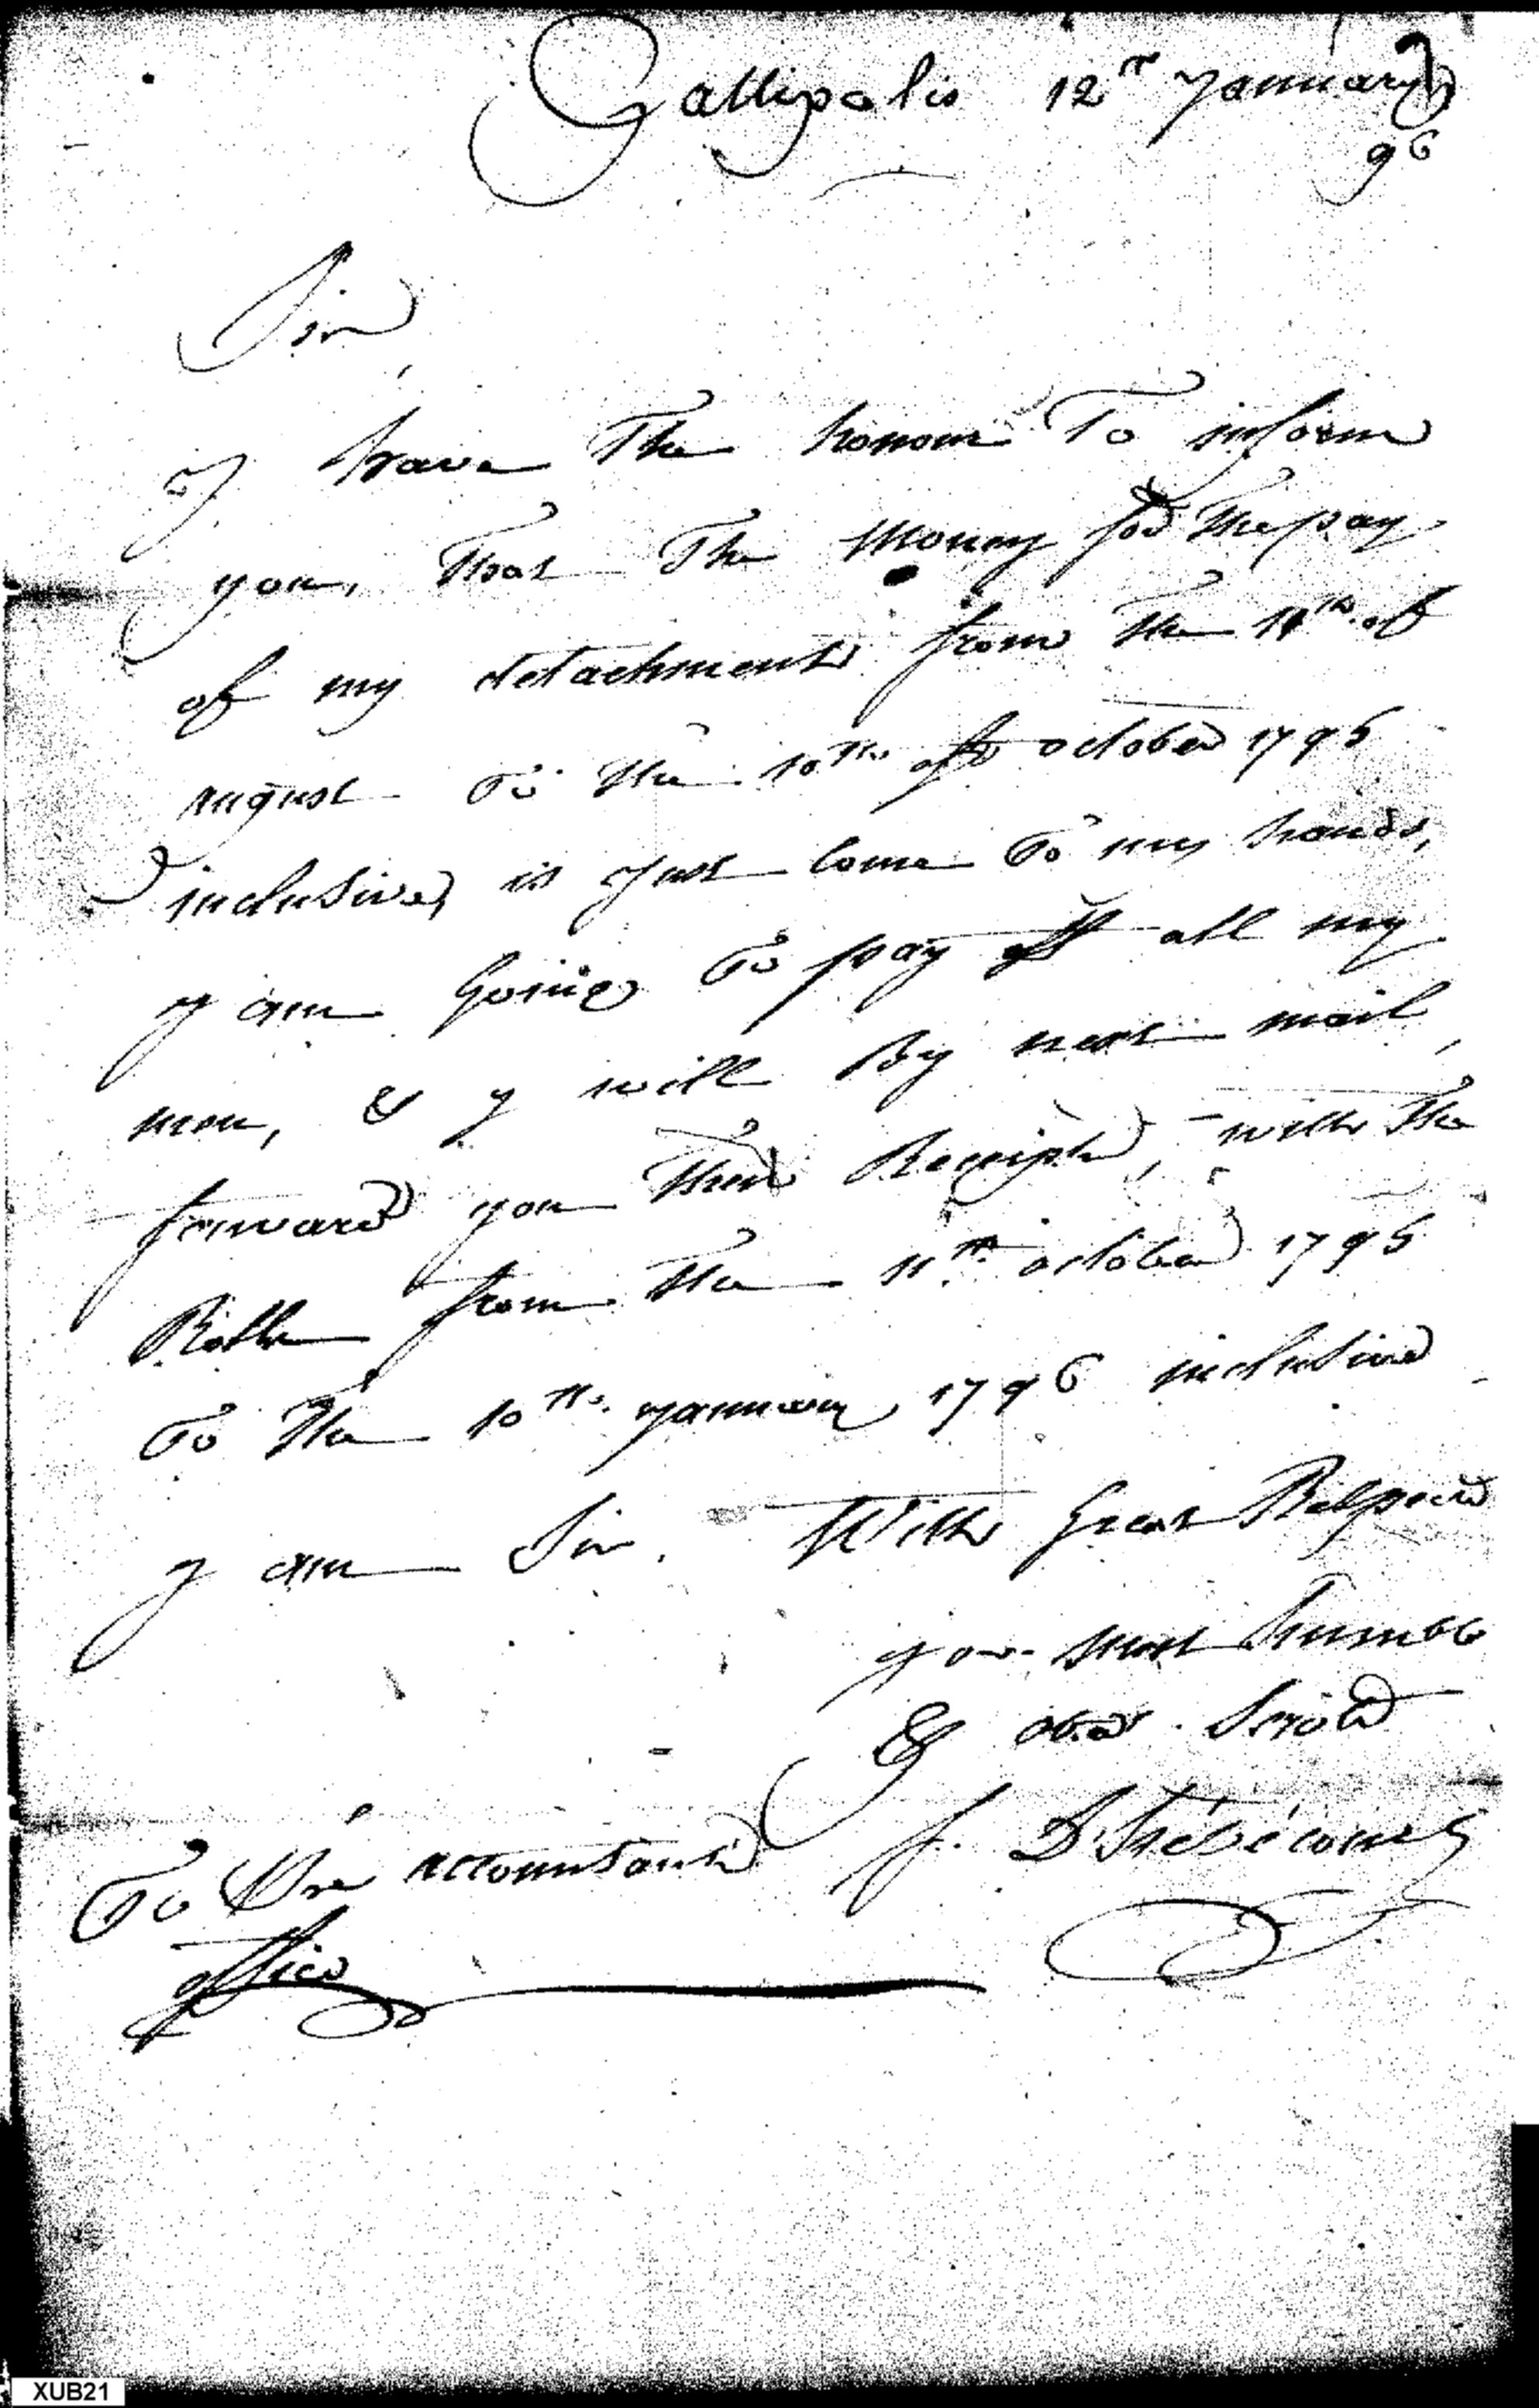 Gallipolis 12th January
96
Sir
I have The honour To inform
you, That The Money for The pay
of my detachment from The 11th of
august To The 10th of october 1795
inclusive, is Just Come To my hands,
I am Going To pay off all my
men, & I will By next mail
forward you Their Receipt, with The
Rolle from The 11th october 1795
To The 10th January 1796 inclusive
I am Sir. With Great Respect
your Most humble
& obed. Servt
f. D'hébécourt
To The accountant
office
XUB21